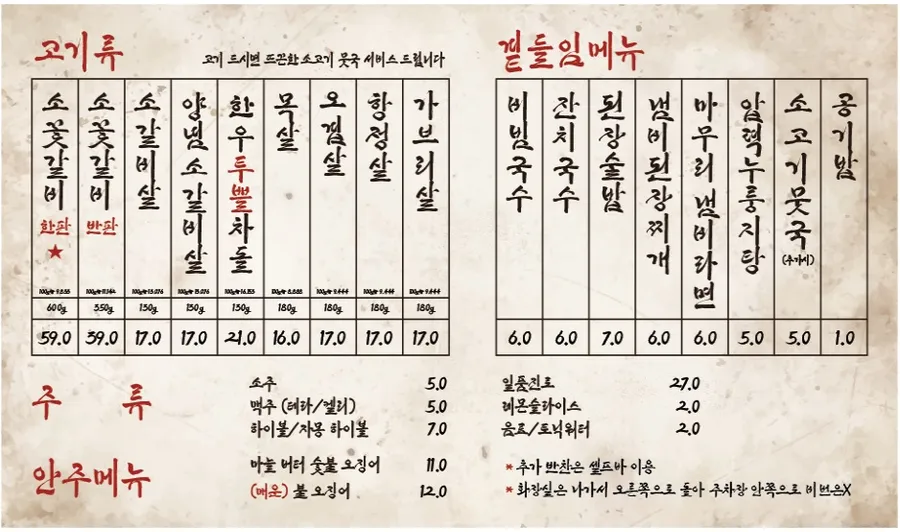 고기류
고기 드시면 뜨끈한 소고기 뭇국 서비스 드립니다
소꽃갈비 한판 ★
소꽃갈비 반판
소갈비살
양념소갈비살
한우투뿔차돌
목살
오겹살
항정살
가브리살
600g 350g 130g 130g 130g 180g 180g 180g 180g
59.0 39.0 17.0 17.0 21.0 16.0 17.0 17.0 17.0
곁들임메뉴
비빔국수
잔치국수
된장술밥
냄비된장찌개
마무리 냄비라면
압력누룽지탕
소고기뭇국 (추가시)
공기밥
6.0 6.0 7.0 6.0 6.0 5.0 5.0 1.0
주 류
소주 5.0
맥주 (테라/켈리) 5.0
하이볼/자몽 하이볼 7.0
일품진로 27.0
레몬슬라이스 2.0
음료/토닉워터 2.0
안주메뉴
마늘 버터 숯불 오징어 11.0
(매운) 불 오징어 12.0
* 추가 반찬은 셀프바 이용
* 화장실은 나가서 오른쪽으로 돌아 주차장 안쪽으로 비번은X